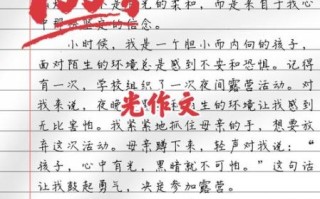 不是
的柔和，而是来自于我心
的信念。
小时候，我是一个胆小而内向的孩子，
面对陌生的环境总是感到不安和恐惧。记得
有一次，学校组织了一次夜间露营活动。对
我来说，夜晚
生的环境让我感到
无比害怕。我紧紧地抓住母亲的手，想要放
弃这次活动。母亲蹲下来，轻声对我说：“
孩子，心中有光，黑暗就不可怕。”这句话
让我鼓起勇气，决定参加露营。
光作文